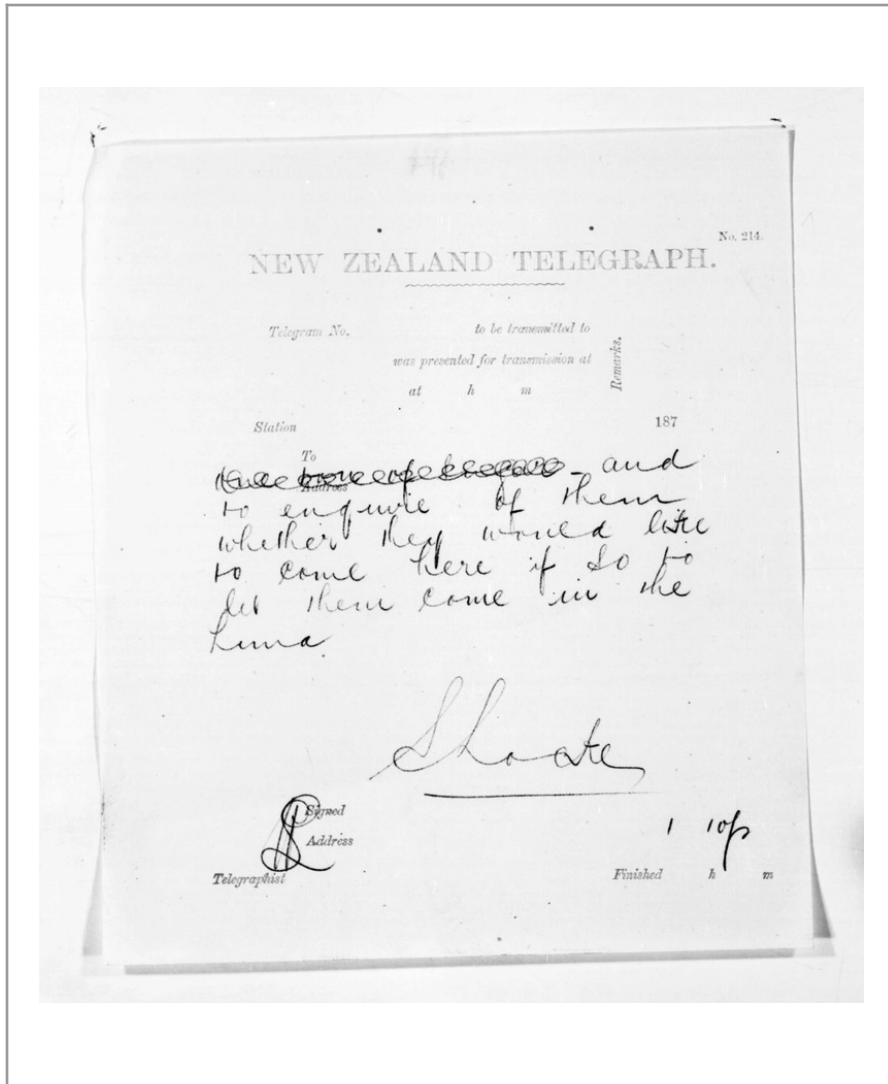 No. 214.
NEW ZEALAND TELEGRAPH.
Telegram No. to be transmitted to
was presented for transmission at
Remarks.
at h m
Station 187
To
Address
and
to enquire of them
whether they would like
to come here if so to
let them come in the
Luna
S Locke
Signed
Address
1 10 p
Telegraphist Finished h m